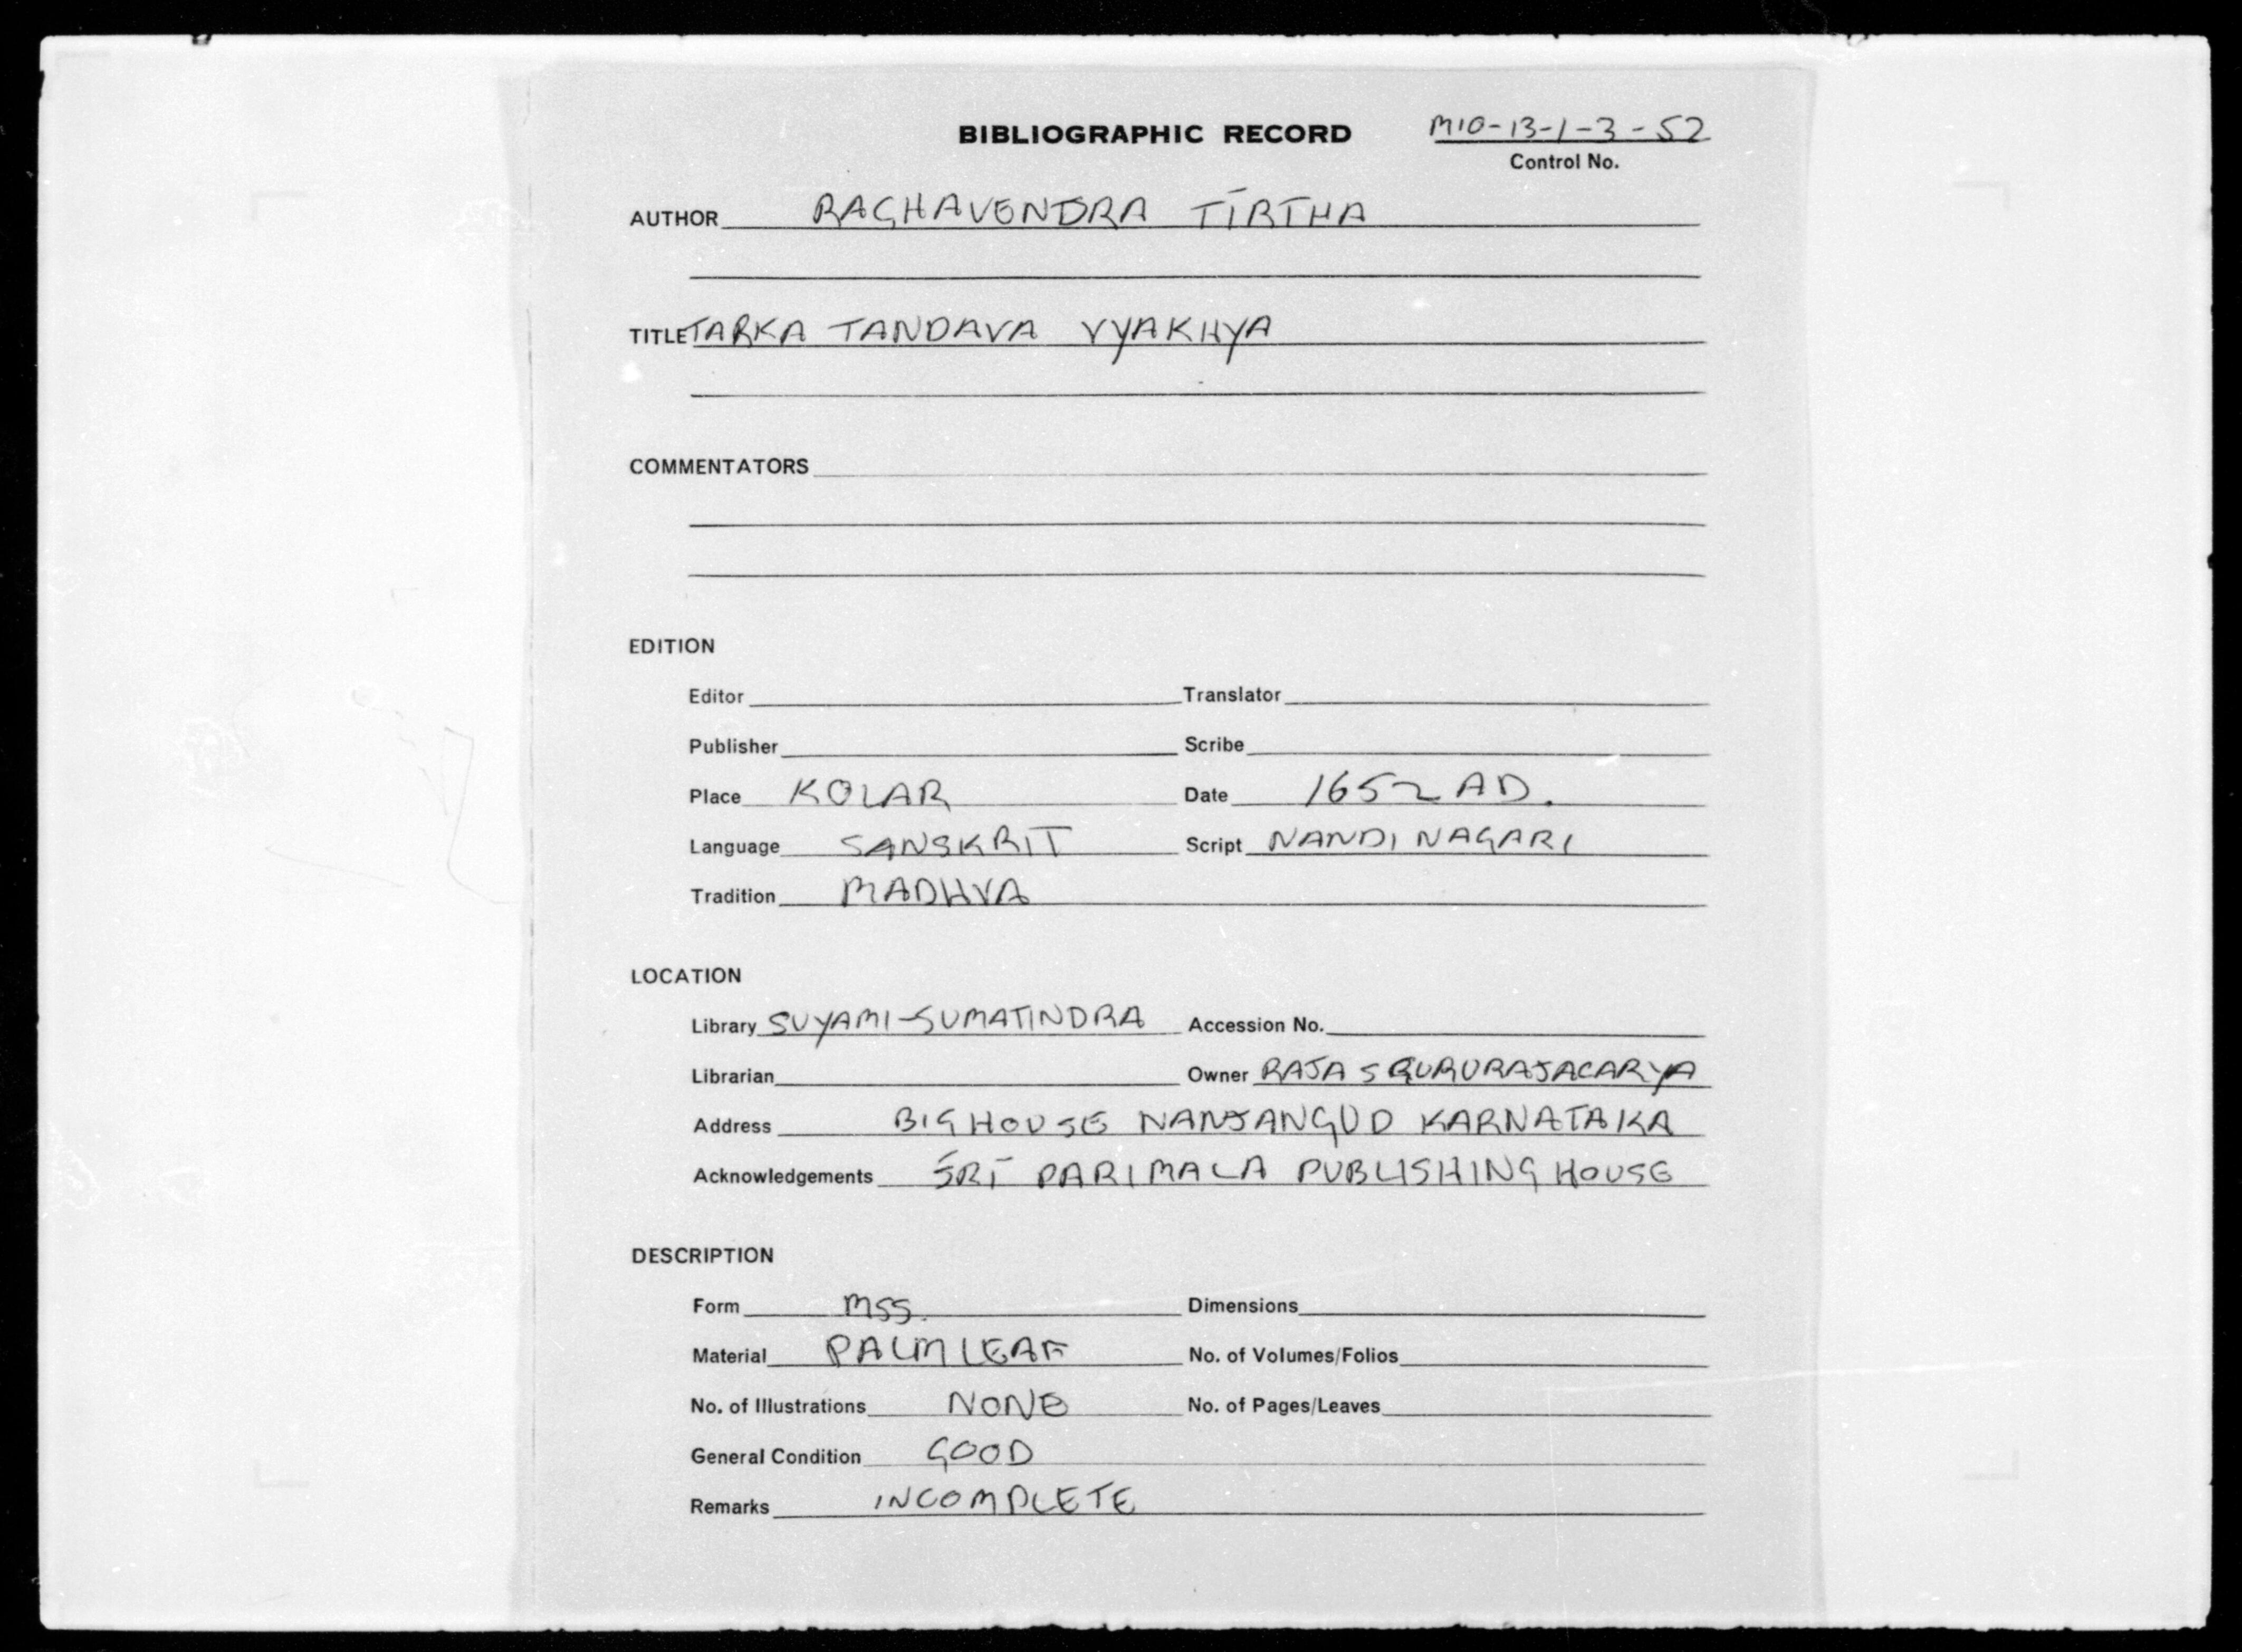 BIBLIOGRAPHIC RECORD M10-13-1-3-52
Control No.
AUTHOR RAGHAVENDRA TĪRTHA
TITLE TARKA TANDAVA VYAKHYA
COMMENTATORS
EDITION
Editor Translator
Publisher Scribe
Place KOLAR Date 1652 AD.
Language SANSKRIT Script NANDINAGARI
Tradition MADHVA
LOCATION
Library SUYAMI-SUMATINDRA Accession No.
Librarian Owner RAJA S GURURAJACARYA
Address BIG HOUSE NANJANGUD KARNATAKA
Acknowledgements ŚRĪ PARIMALA PUBLISHING HOUSE
DESCRIPTION
Form MSS. Dimensions
Material PALM LEAF No. of Volumes/Folios
No. of Illustrations NONE No. of Pages/Leaves
General Condition GOOD
Remarks INCOMPLETE